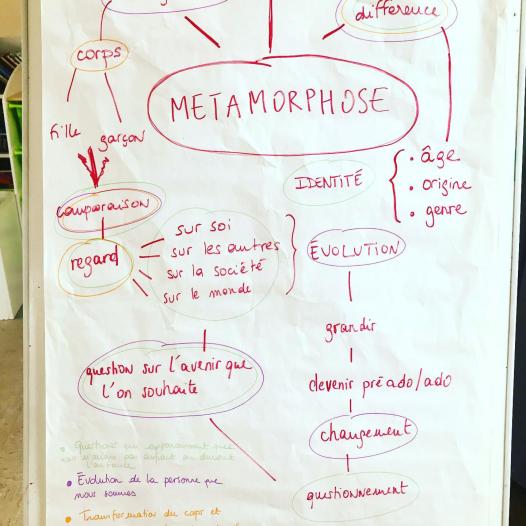 différence
corps
METAMORPHOSE
fille
garçon
IDENTITÉ
• âge
• origine
• genre
comparaison
regard
sur soi
sur les autres
sur la société
sur le monde
ÉVOLUTION
grandir
question sur l'avenir que
l'on souhaite
devenir préado/ado
changement
questionnement
• Évolution de la personne que
nous sommes
• Transformation du corps et